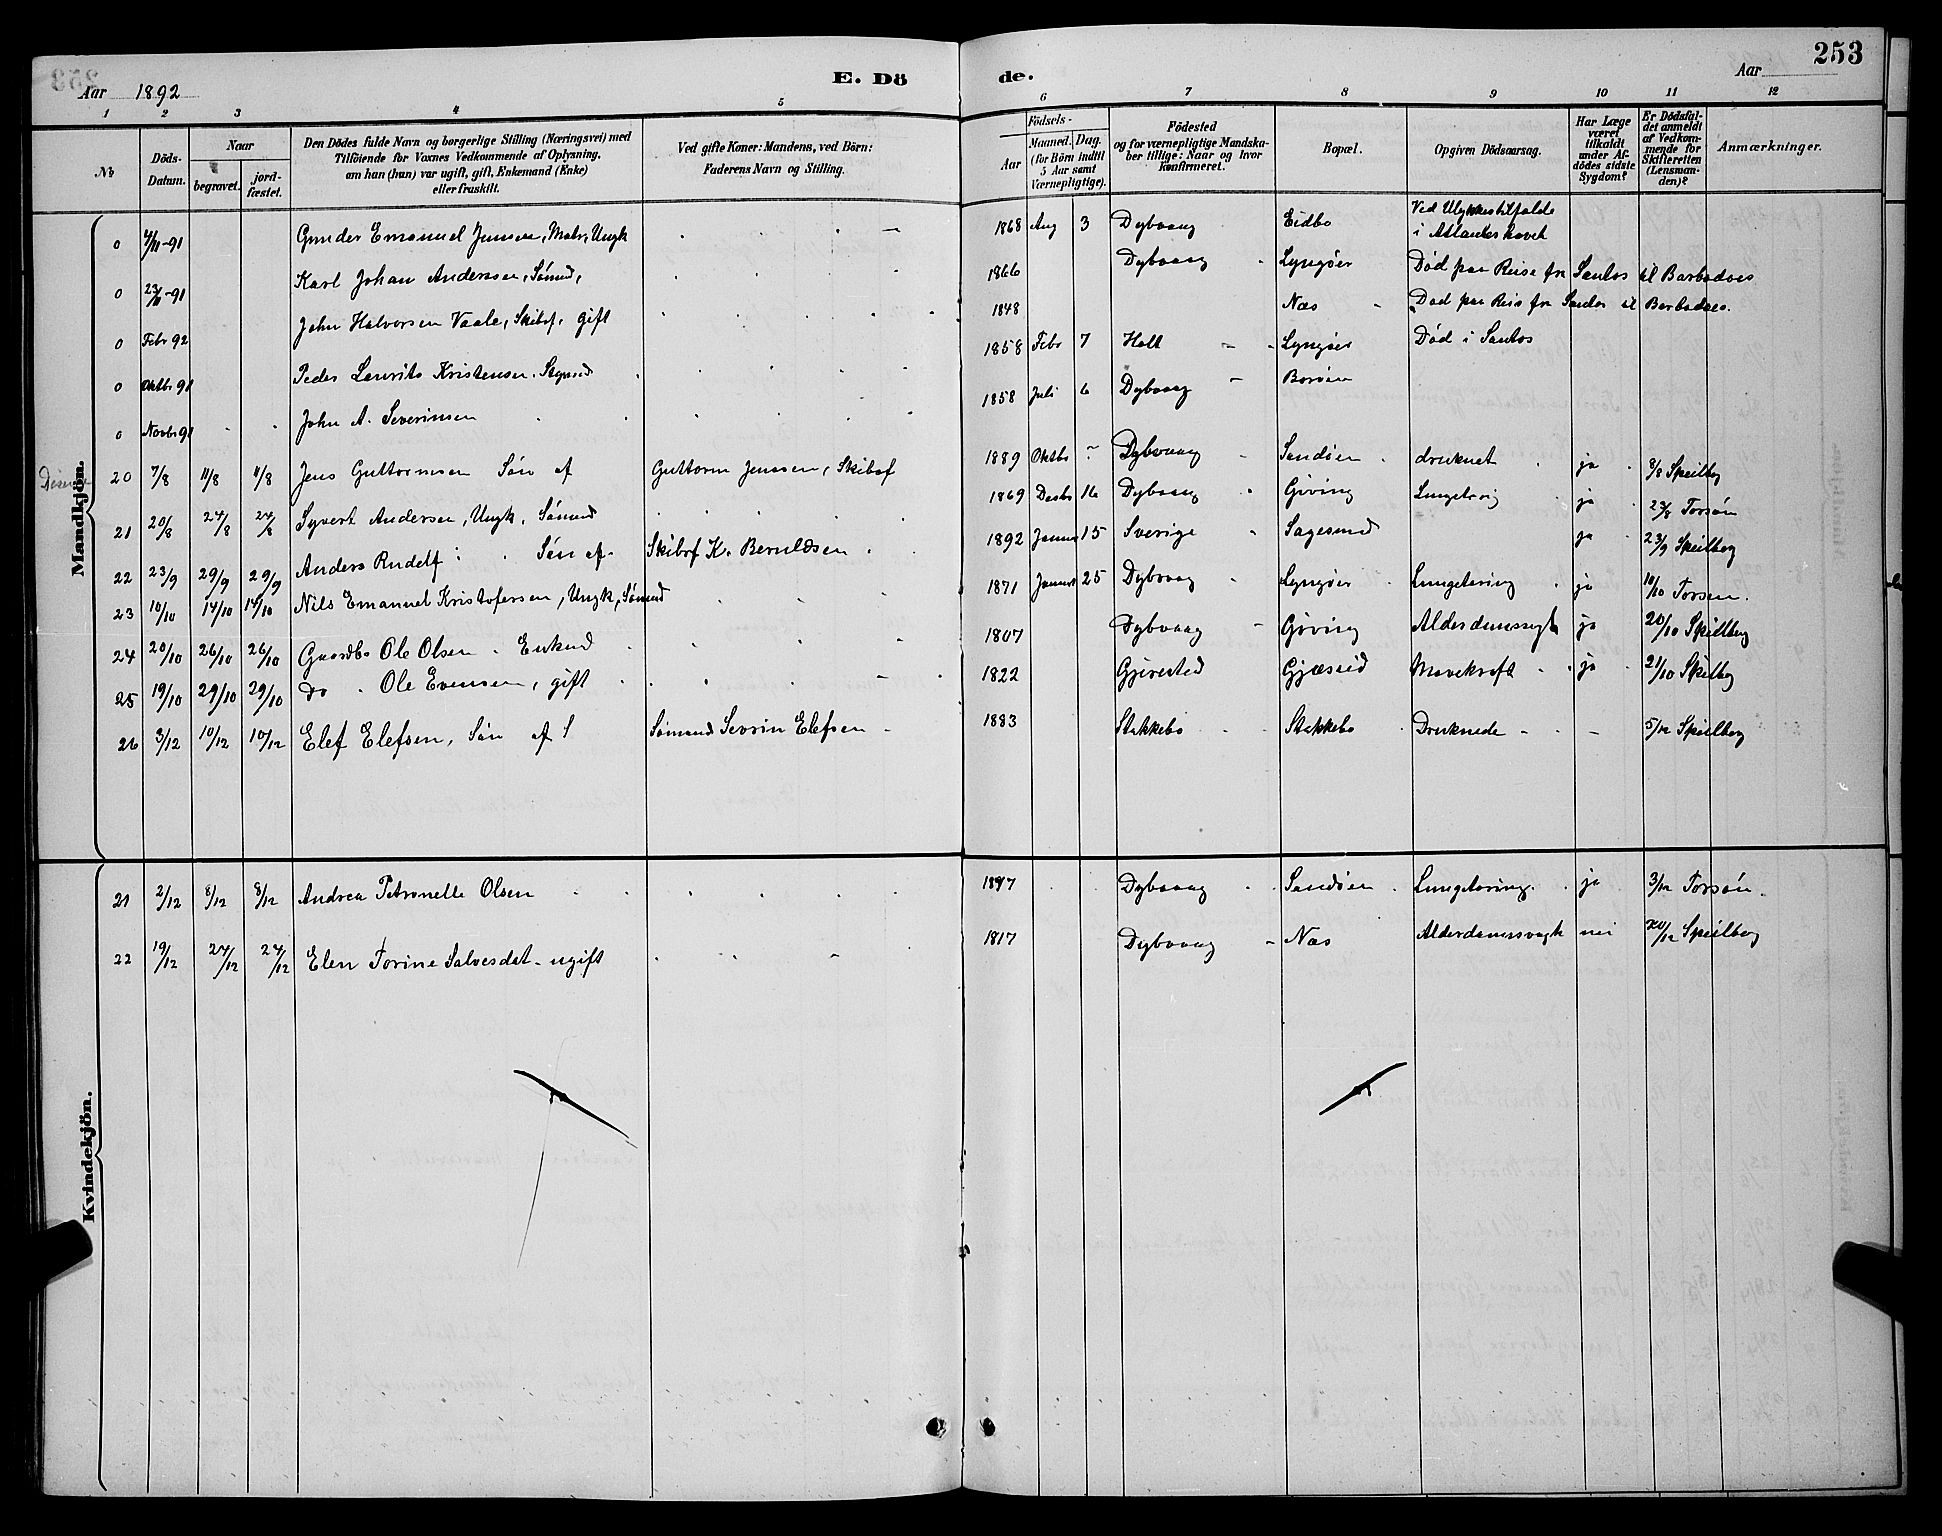 253
E. Dö de.
Aar 1892
Aar
1 2 3 4 5 6 7 8 9 10 11 12
No
Döds-Datum.
Naar
begravet.
jord-fæstet.
Den Dödes fulde Navn og borgerlige Stilling (Næringsvei) med
Tilföiende for Voxnes Vedkommende af Oplysning,
om han (hun) var ugift, gift, Enkemand (Enke)
eller fraskilt.
Ved gifte Koner: Mandens, ved Börn:
Faderens Navn og Stilling.
Födsels-
Aar
Maaned. Dag.
(for Börn indtil
5 Aar samt
Værnepligtige).
Födested
og for værnepligtige Mandska-
ber tillige: Naar og hvor
Konfirmeret.
Bopæl.
Opgiven Dödsaarsag.
Har Læge
været
tilkaldt
under Af-
dödes sidste
Sygdom?
Er Dödsfal-
det anmeldt
af Vedkom-
mende for
Skifteretten
(Lensman-
den)?
Anmærkninger.
Mandkjön.
0 4/11-91 Gunder Emanuel Jensen, Matr, Ungk 1868 Aug 3 Dybvaag Eidbo Ved Ulykkestilfælde
i Atlanterhavet
0 23/11-91 Karl Johan Andersen, Sömd, 1866 Dybvaag Lyngøer Död paa Reise fra Santos til Barbadoes
0 Febr 92 John Halvorsen Vaale, Skibsf. gift 1848 Næs Död paa Reis fra Santos til Barbadoes.
0 Oktbr 91 Peder Lauritz Kristensen, Stymd 1858 Febr 7 Holt Lyngøer Död i Santos
0 Novbr 91 John A. Severinsen 1858 Juli 6 Dybvaag Borøen
20 7/8 11/8 11/8 Jens Guttormsen Sön af Guttorm Jenssen, Skibsf 1889 Oktbr ? Dybvaag Sandøen druknet ja 8/8 Speilberg
21 20/8 24/8 24/8 Syvert Andersen, Ungk, Sömd 1869 Desbr 16 Dybvaag Gjving Lungetæring ja 23/8 Torsøn
22 23/9 29/9 29/9 Anders Rudolf Sön af Skibsf K. Berntsen 1892 Januar 15 Sverige Sagesund ja 23/9 Speilberg
23 10/10 14/10 14/10 Nils Emanuel Kristofersen, Ungk, Sömd 1871 Januar 25 Dybvaag Lyngøer Lungetæring ja 10/10 Torsen.
24 20/10 26/10 26/10 Gaardbr Ole Olsen Enkmd 1807 Dybvaag Gjving Alderdomssvagh ja 20/10 Speilberg
25 19/10 29/10 29/10 Do Ole Evensen, gift 1822 Gjerestad Gjæseid Mavekræft ja 21/10 Speilberg
26 3/12 10/12 10/12 Elef Elefsen, Sön af S Sömand Sevrin Elefsen 1883 Stakkebo Stakkebo Druknede - 5/12 Speilberg
Kvindekjön.
21 2/12 8/12 8/12 Andrea Petronelle Olsen Dybvaag Sandøen Lungetæring ja 3/12 Torsøn
22 19/12 24/12 24/12 Elen Torine Salvesdat - ugift 1817 Dybvaag Næs Alderdomssvagh nei 20/12 Speilberg